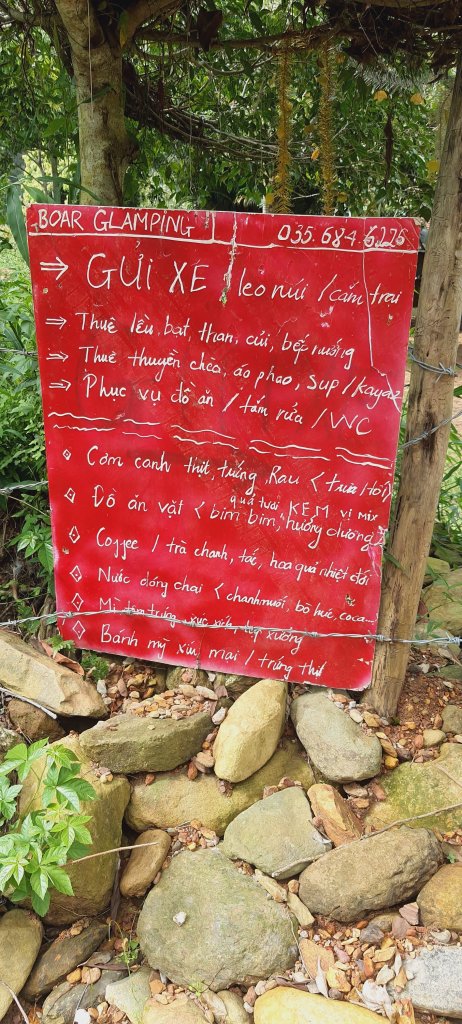 BOAR GLAMPING 035.684.6226
⇒ GỬI XE leo núi / cắm trại
⇒ Thuê lều, bạt, than, củi, bếp nướng
⇒ Thuê thuyền chèo, áo phao, sup / kayak
⇒ Phục vụ đồ ăn / tắm rửa / WC
Cơm canh thịt, trứng, Rau < trưa / tối >
quả tươi, KEM vị mix
Đồ ăn vặt < bim bim, hướng dương >
Coffee / trà chanh, tắc, hoa quả nhiệt đới
Nước đóng chai < chanh muối, bò húc, coca
Mì tôm trứng, xúc xích,
Bánh mỳ xíu mại / trứng thịt